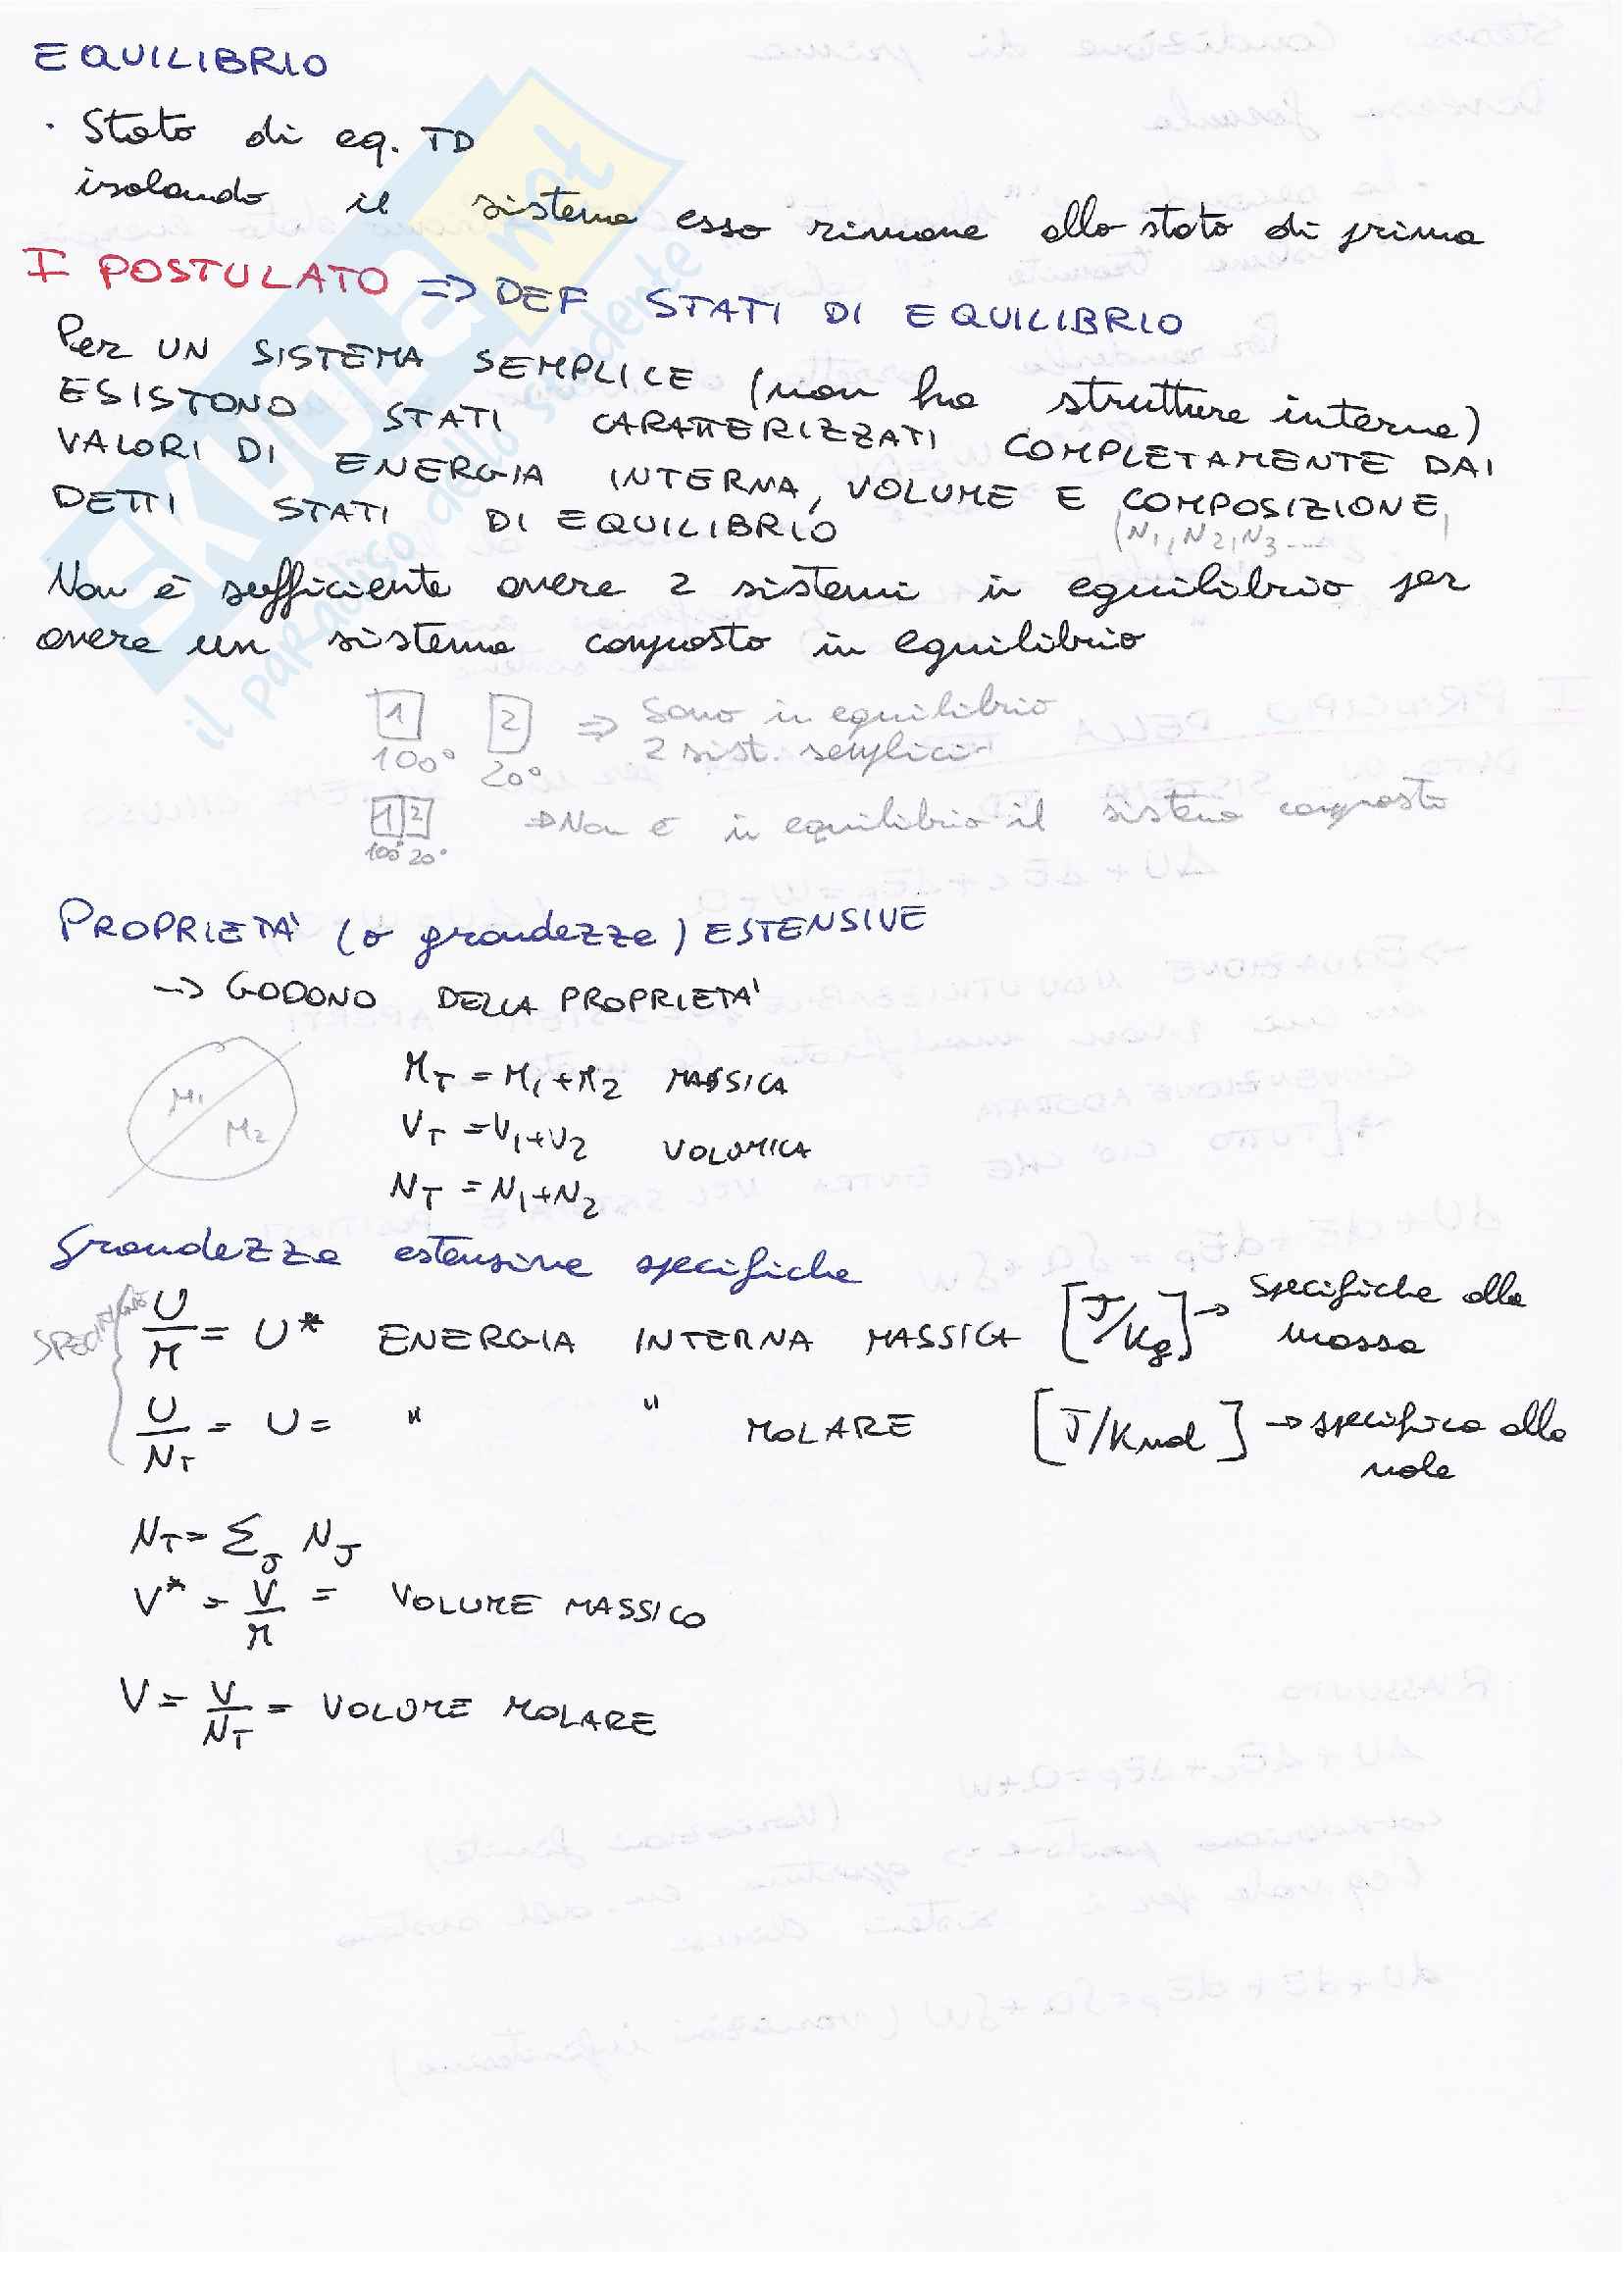 EQUILIBRIO
· Stato di eq. TD
isolando il sistema esso rimane allo stato di prima
I POSTULATO => DEF STATI DI EQUILIBRIO
Per UN SISTEMA SEMPLICE (non ha strutture interne)
ESISTONO STATI CARATTERIZZATI COMPLETAMENTE DAI
VALORI DI ENERGIA INTERNA, VOLUME E COMPOSIZIONE,
(N1, N2, N3 ....
DETTI STATI DI EQUILIBRIO
Non è sufficiente avere 2 sistemi in equilibrio per
avere un sistema composto in equilibrio
1 2 => Sono in equilibrio
100° 20° 2 sist. semplici
1 2 => Non è in equilibrio il sistema composto
100° 20°
PROPRIETA' (o grandezze) ESTENSIVE
-> GODONO DELLA PROPRIETA'
M1
M2
MT = M1+M2 MASSICA
VT = V1+V2 VOLUMICA
NT = N1+N2
Grandezze estensive specifiche
U/M = U* ENERGIA INTERNA MASSICA [J/Kg] -> Specifiche alla massa
U/NT = U = " " MOLARE [J/Kmol] -> specifica alla mole
NT = Σj NJ
V* = V/M = VOLUME MASSICO
V = V/NT = VOLUME MOLARE
SKUOLA.net
il paradiso dello studente